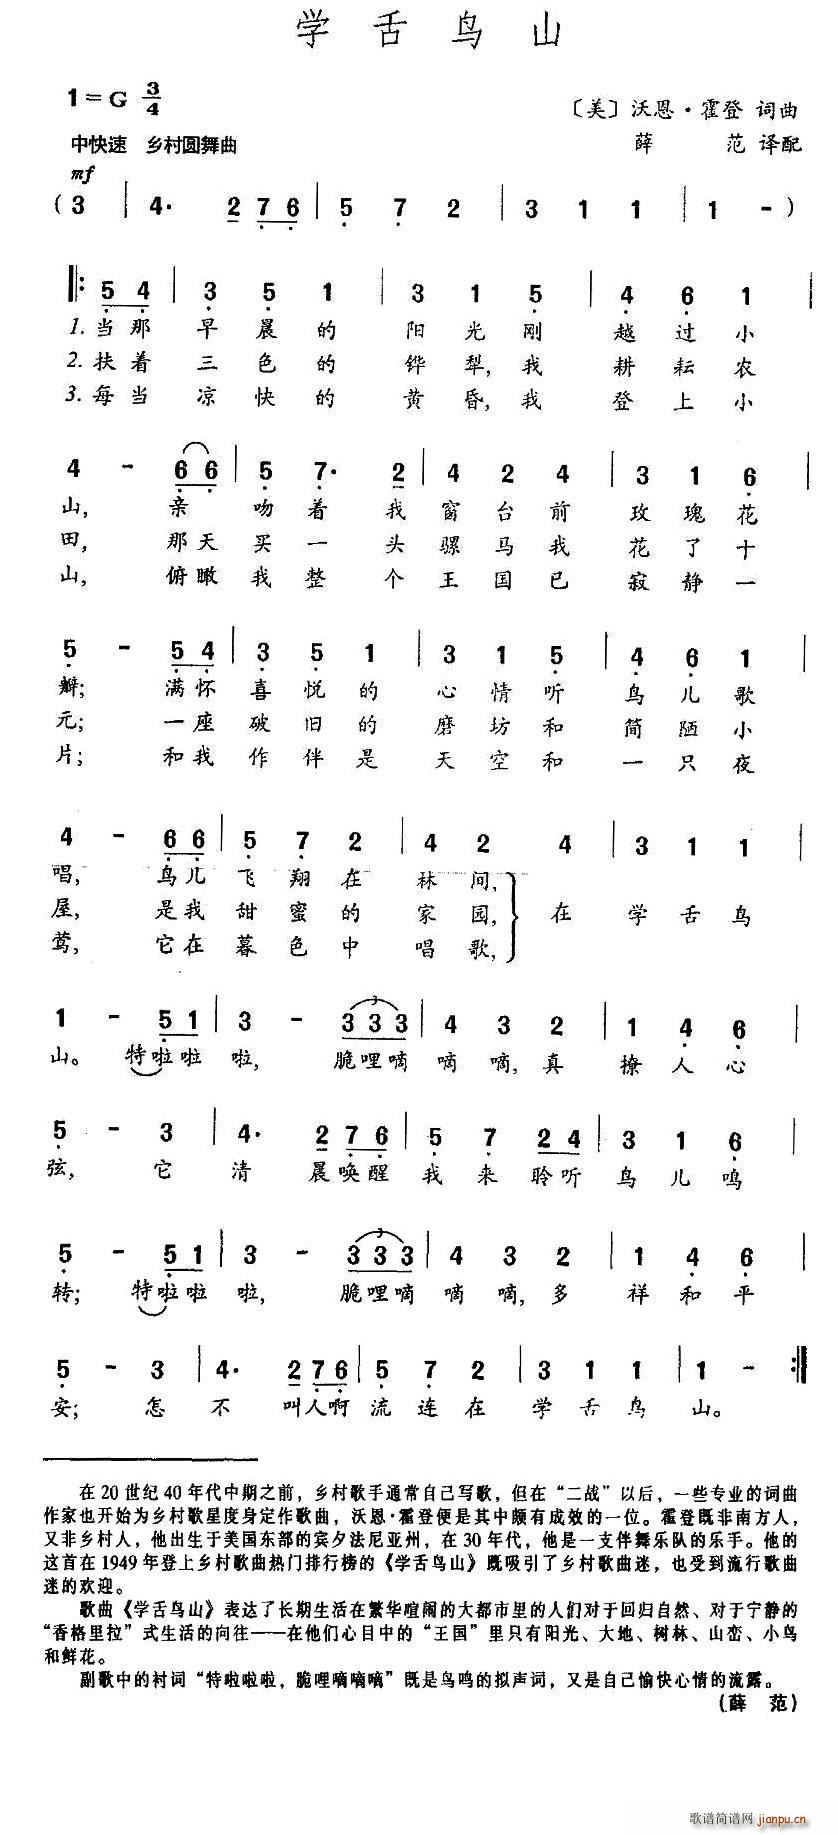 学舌鸟山
1=G 3/4
〔美〕沃恩·霍登 词曲
中快速 乡村圆舞曲
薛 范 译配
mf
( 3 | 4· 2 7 6 | 5 7 2 | 3 1 1 | 1 - )
5 4 | 3 5 1 | 3 1 5 | 4 6 1 |
1.当那 早晨的 阳光刚 越过小
2.扶着 三色的 铧犁,我 耕耘农
3.每当 凉快的 黄昏,我 登上小
4 - 6 6 | 5 7· 2 | 4 2 4 | 3 1 6 |
山, 亲 吻着我 窗台前 玫瑰花
田, 那天 买一头 骡马我 花了十
山, 俯瞰 我整个 王国已 寂静一
5 - 5 4 | 3 5 1 | 3 1 5 | 4 6 1 |
瓣; 满怀 喜悦的 心情听 鸟儿歌
元; 一座 破旧的 磨坊和 简陋小
片; 和我 作伴是 天空和 一只夜
4 - 6 6 | 5 7 2 | 4 2 4 | 3 1 1 |
唱, 鸟儿 飞翔在 林间,
屋, 是我 甜蜜的 家园, 在 学舌鸟
莺, 它在 暮色中 唱歌,
1 - 5 1 | 3 - 3 3 3 | 4 3 2 | 1 4 6 |
山。 特啦啦 啦, 脆哩嘀 嘀嘀,真 撩人心
5 - 3 | 4· 2 7 6 | 5 7 2 4 | 3 1 6 |
弦, 它 清 晨唤醒 我来聆听 鸟儿鸣
5 - 5 1 | 3 - 3 3 3 | 4 3 2 | 1 4 6 |
转; 特啦啦 啦, 脆哩嘀 嘀嘀,多 祥和平
5 - 3 | 4· 2 7 6 | 5 7 2 | 3 1 1 | 1 - :|
安; 怎 不 叫人啊 流连在 学舌鸟 山。
在20世纪40年代中期之前,乡村歌手通常自己写歌,但在“二战”以后,一些专业的词曲
作家也开始为乡村歌星度身定作歌曲,沃恩·霍登便是其中颇有成效的一位。霍登既非南方人,
又非乡村人,他出生于美国东部的宾夕法尼亚州,在30年代,他是一支伴舞乐队的乐手。他的
这首在1949年登上乡村歌曲热门排行榜的《学舌鸟山》既吸引了乡村歌曲迷,也受到流行歌曲
迷的欢迎。
歌曲《学舌鸟山》表达了长期生活在繁华喧闹的大都市里的人们对于回归自然、对于宁静的
“香格里拉”式生活的向往——在他们心目中的“王国”里只有阳光、大地、树林、山峦、小鸟
和鲜花。
副歌中的衬词“特啦啦啦,脆哩嘀嘀嘀”既是鸟鸣的拟声词,又是自己愉快心情的流露。
(薛 范)
歌谱简谱网 jianpu.cn